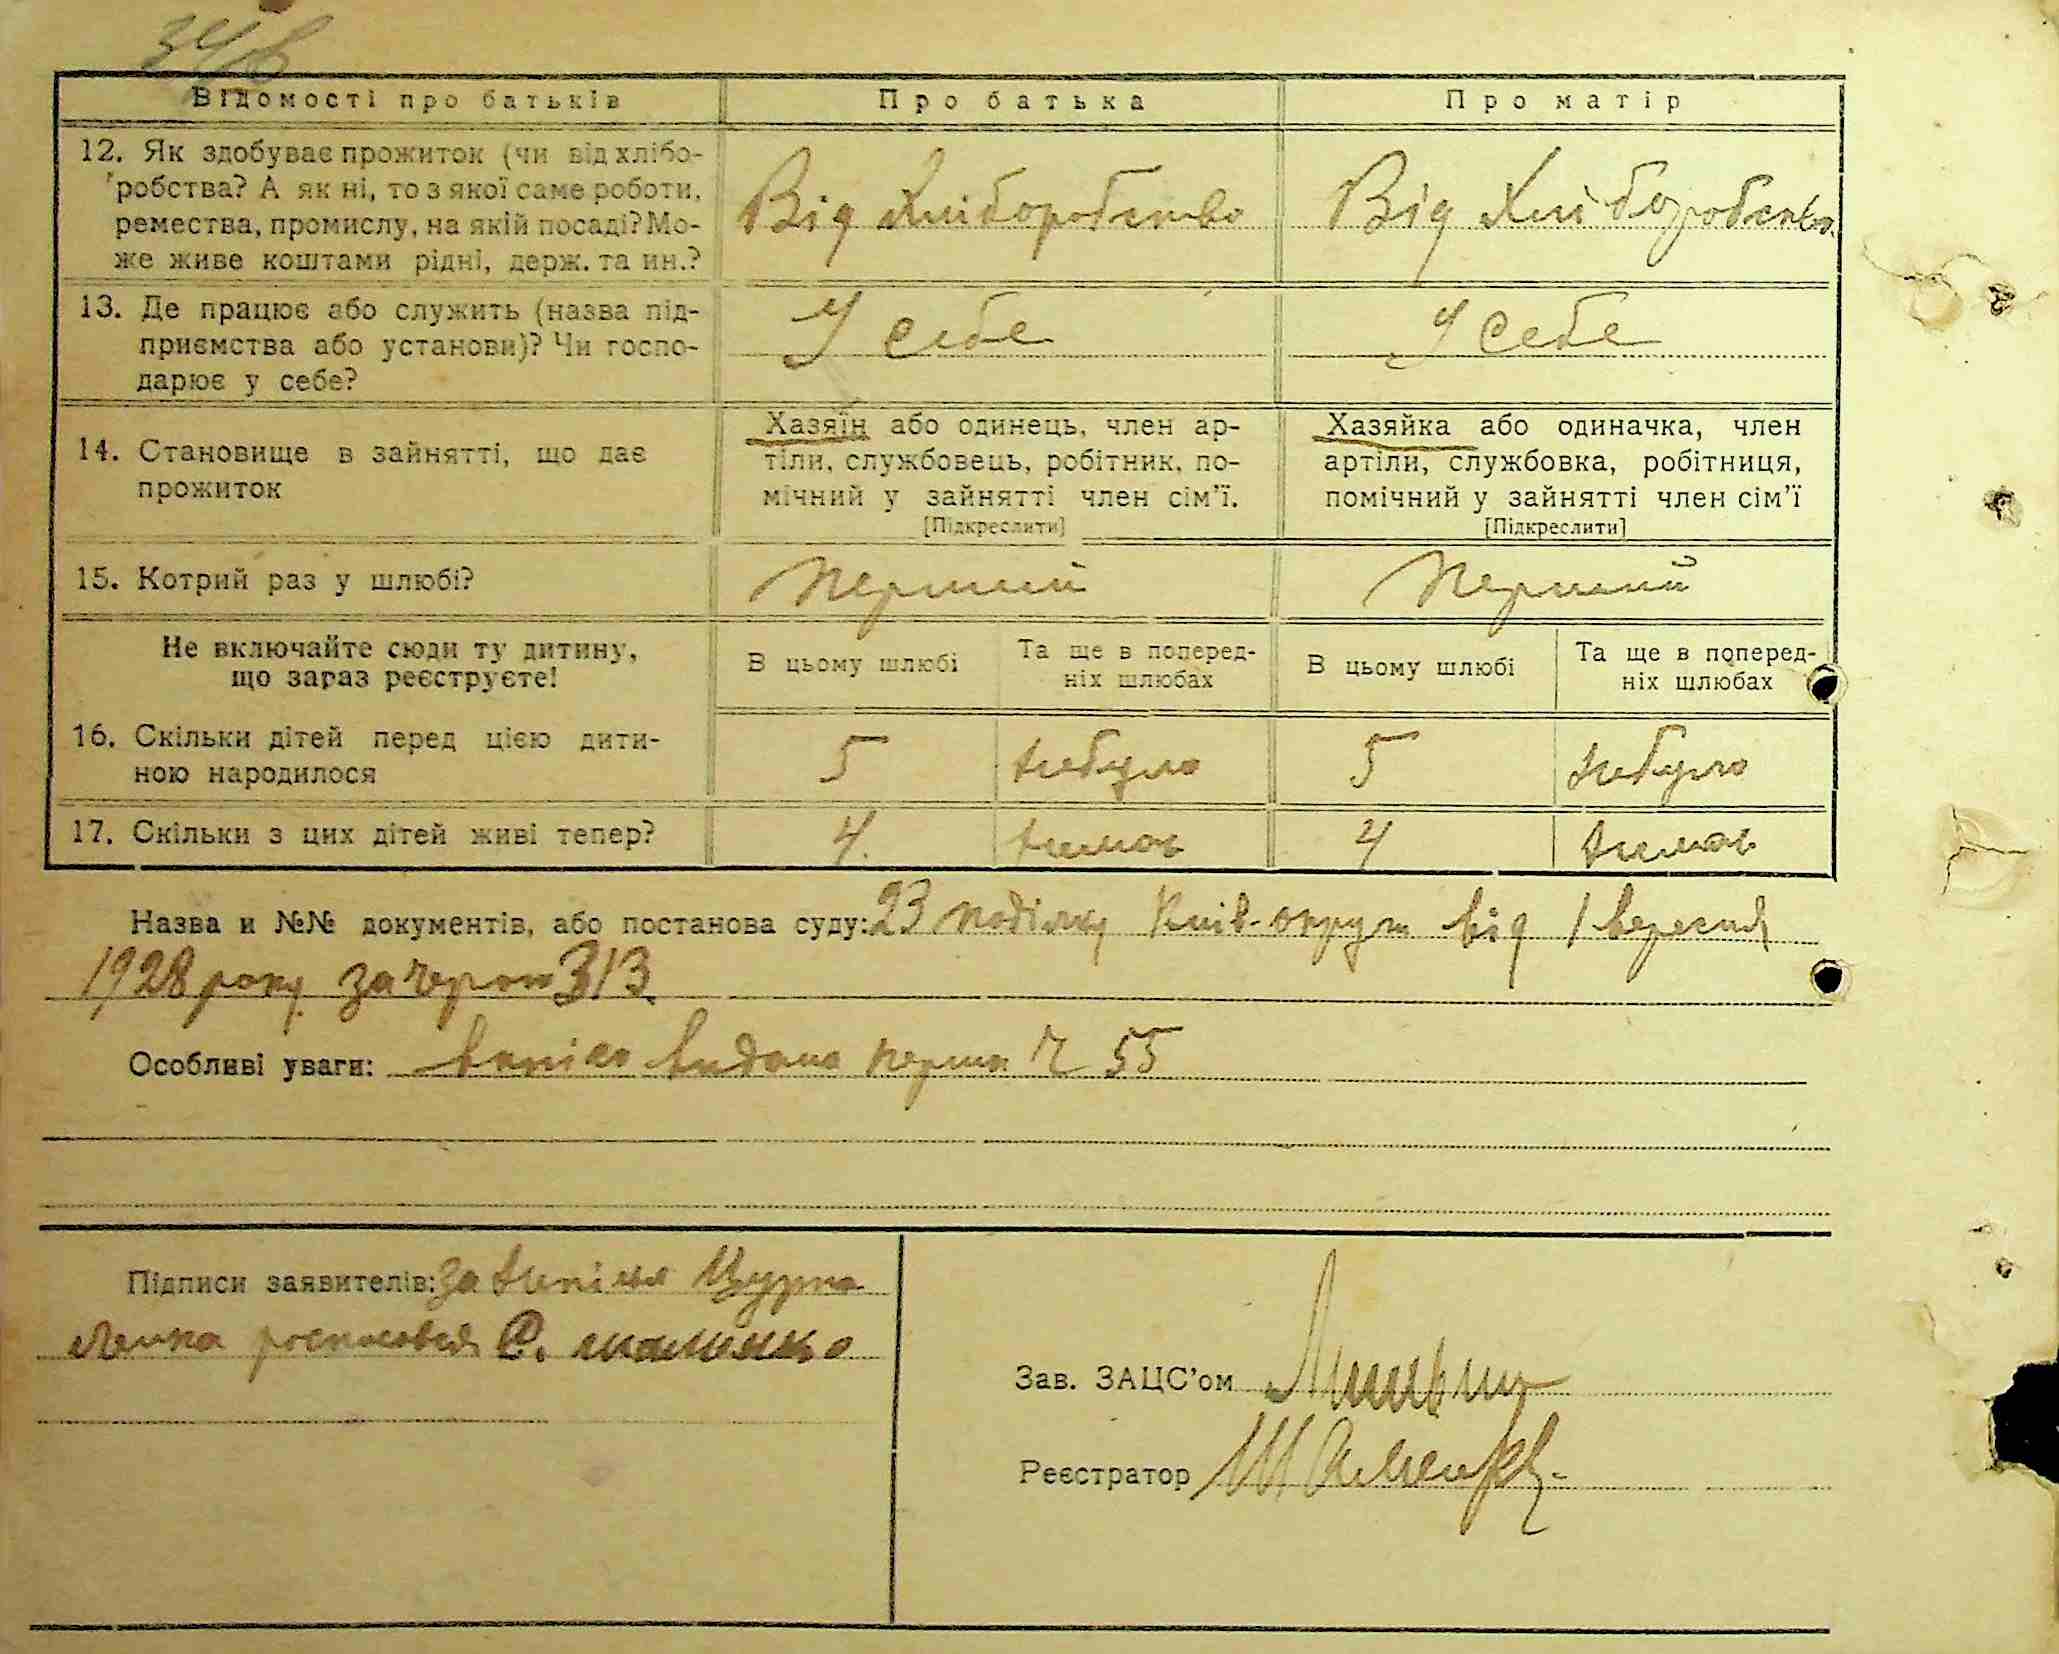 34/в
Відомості про батьків
Про батька
Про матір
12. Як здобуває прожиток (чи від хлібо-
робства? А як ні, то з якої саме роботи,
ремества, промислу, на якій посаді? Мо-
же живе коштами рідні, держ. та ин.?
Від Хліборобство
Від Хліборобство
13. Де працює або служить (назва під-
приємства або установи)? Чи госпо-
дарює у себе?
У себе
У себе
14. Становище в зайнятті, що дає
прожиток
Хазяїн або одинець, член ар-
тіли, службовець, робітник, по-
мічний у зайнятті член сім'ї.
[Підкреслити]
Хазяйка або одиначка, член
артіли, службовка, робітниця,
помічний у зайнятті член сім'ї
[Підкреслити]
15. Котрий раз у шлюбі?
Перший
Перший
Не включайте сюди ту дитину,
що зараз реєструєте!
В цьому шлюбі
Та ще в поперед-
ніх шлюбах
В цьому шлюбі
Та ще в поперед-
ніх шлюбах
16. Скільки дітей перед цією дити-
ною народилося
5
небуло
5
небуло
17. Скільки з цих дітей живі тепер?
4.
нема
4
нема
Назва и №№ документів, або постанова суду: 23 поділку Київ-округи від 1 вересня
1928 року за чергою 313.
Особливі уваги: видана перша Ч 55
Підписи заявителів: за
С.
Зав. ЗАЦС'ом
Реєстратор